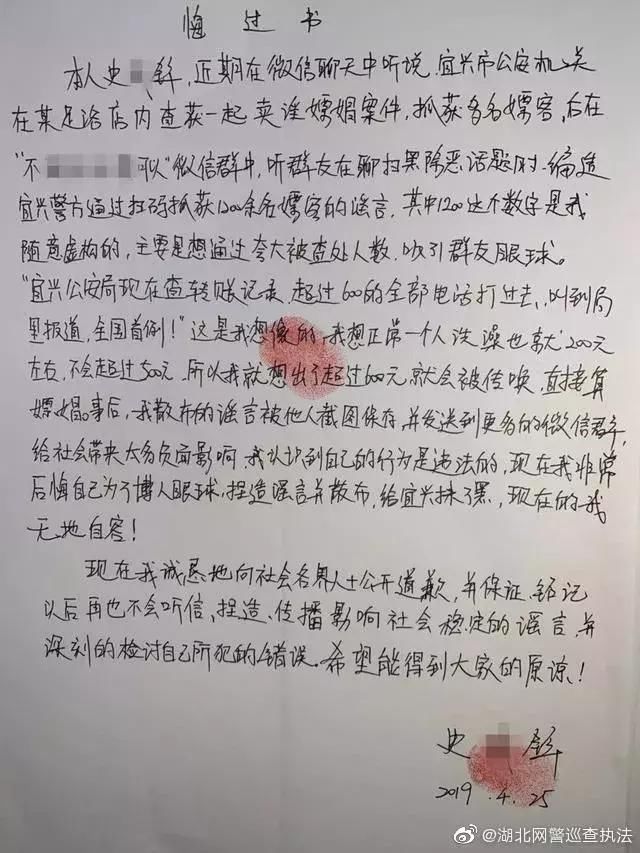 悔过书
本人史 锌，近期在微信聊天中听说，宜兴市公安机关
在某足浴店内查获一起卖淫嫖娼案件，抓获多名嫖客，后在
“不 可以”微信群中，听群友在聊扫黑除恶话题时，编造
宜兴警方通过扫码抓获1200余名嫖客的谣言，其中1200这个数字是我
随意虚构的，主要是想通过夸大被查处人数，吸引群友眼球。
“宜兴公安局现在查转账记录，超过600的全部电话打过去，叫到局
里报道，全国首例！”这是我想像的，我想正常一个人洗澡也就200元
左右，不会超过500元，所以我就想出了超过600元就会被传唤，直接算
嫖娼。事后，我散布的谣言被他人截图保存，并发送到更多的微信群，
给社会带来太多负面影响，我认识到自己的行为是违法的，现在我非常
后悔自己为了博人眼球，捏造谣言并散布，给宜兴抹了黑，现在的我
无地自容！
现在我诚恳地向社会各界人士公开道歉，并保证，铭记
以后再也不会听信、捏造、传播影响社会稳定的谣言，并
深刻的检讨自己所犯的错误。希望能得到大家的原谅！
史 锌
2019.4.25
@湖北网警巡查执法